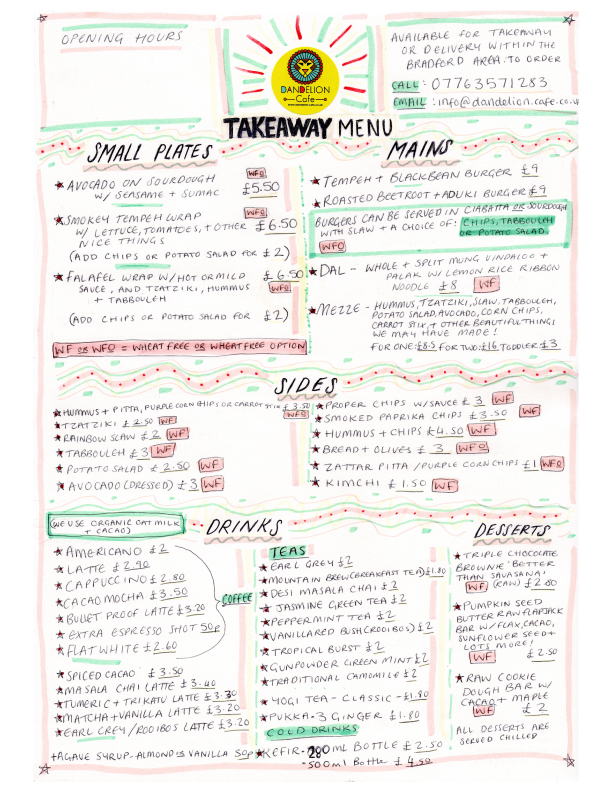 OPENING HOURS
DANDELION
Cafe
AVAILABLE FOR TAKEAWAY
OR DELIVERY WITHIN THE
BRADFORD AREA. TO ORDER
CALL: 07763571283
EMAIL: info@dandelion.cafe.co.u
TAKEAWAY MENU
SMALL PLATES
AVOCADO ON SOURDOUGH WFO
W/ SEASAME + SUMAC £5.50
SMOKEY TEMPEH WRAP WFO
W/ LETTUCE, TOMATOES, + OTHER £6.50
NICE THINGS
(ADD CHIPS OR POTATO SALAD FOR £2)
FALAFEL WRAP W/ HOT OR MILD £6.50
SAUCE, AND TZATZIKI, HUMMUS WFO
+ TABBOULEH
(ADD CHIPS OR POTATO SALAD FOR £2)
WF OR WFO = WHEAT FREE OR WHEAT FREE OPTION
MAINS
TEMPEH + BLACKBEAN BURGER £9
ROASTED BEETROOT + ADUKI BURGER £9
BURGERS CAN BE SERVED IN CIABATTA OR SOURDOUGH
WITH SLAW + A CHOICE OF: CHIPS, TABBOULEH
OR POTATO SALAD
WFO
DAL - WHOLE + SPLIT MUNG VINDALOO +
PALAK W/ LEMON RICE RIBBON
NOODLE £8 WF
MEZZE - HUMMUS, TZATZIKI, SLAW, TABBOULEH,
POTATO SALAD, AVOCADO, CORN CHIPS,
CARROT STIX, + OTHER BEAUTIFUL THINGS
WE MAY HAVE MADE!
FOR ONE: £8.5 FOR TWO: £16, TODDLER £3
SIDES
HUMMUS + PITTA, PURPLE CORN CHIPS OR CARROT STIX £3.50
WFO
TZATZIKI £2.50 WF
RAINBOW SLAW £2 WF
TABBOULEH £3 WF
POTATO SALAD £2.50 WF
AVOCADO (DRESSED) £3 WF
PROPER CHIPS W/ SAUCE £3 WF
SMOKED PAPRIKA CHIPS £3.50 WF
HUMMUS + CHIPS £4.50 WF
BREAD + OLIVES £3 WFO
ZATTAR PITTA / PURPLE CORN CHIPS £1 WFO
KIMCHI £1.50 WF
(WE USE ORGANIC OAT MILK
+ CACAO)
DRINKS
AMERICANO £2
LATTE £2.90
CAPPUCCINO £2.80
CACAO MOCHA £3.50
BULLET PROOF LATTE £3.20
EXTRA ESPRESSO SHOT 50p
FLAT WHITE £2.60
COFFEE
SPICED CACAO £3.50
MASALA CHAI LATTE £3.40
TUMERIC + TRIKATU LATTE £3.30
MATCHA + VANILLA LATTE £3.20
EARL GREY / ROOIBOS LATTE £3.20
+AGAVE SYRUP - ALMOND OR VANILLA 50p
TEAS
EARL GREY £2
MOUNTAIN BREW (BREAKFAST TEA) £1.80
DESI MASALA CHAI £2
JASMINE GREEN TEA £2
PEPPERMINT TEA £2
VANILLA RED BUSH (ROOIBOS) £2
TROPICAL BURST £2
GUNPOWDER GREEN MINT £2
TRADITIONAL CAMOMILE £2
YOGI TEA - CLASSIC - £1.80
PUKKA - 3 GINGER £1.80
COLD DRINKS
KEFIR - 200ML BOTTLE £2.50
- 500ml Bottle £4.50
DESSERTS
TRIPLE CHOCOLATE
BROWNIE 'BETTER
THAN SAVASANA'
WF (RAW) £2.80
PUMPKIN SEED
BUTTER RAW FLAPJACK
BAR W/ FLAX, CACAO,
SUNFLOWER SEED +
LOTS MORE!
WF £2.50
RAW COOKIE
DOUGH BAR W/
CACAO + MAPLE
WF £2
ALL DESSERTS ARE
SERVED CHILLED